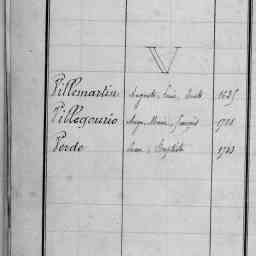 V
Villemartin Auguste, Louis,
Villegourio Ange, Marie, François
Verde Jean, Baptiste 1723